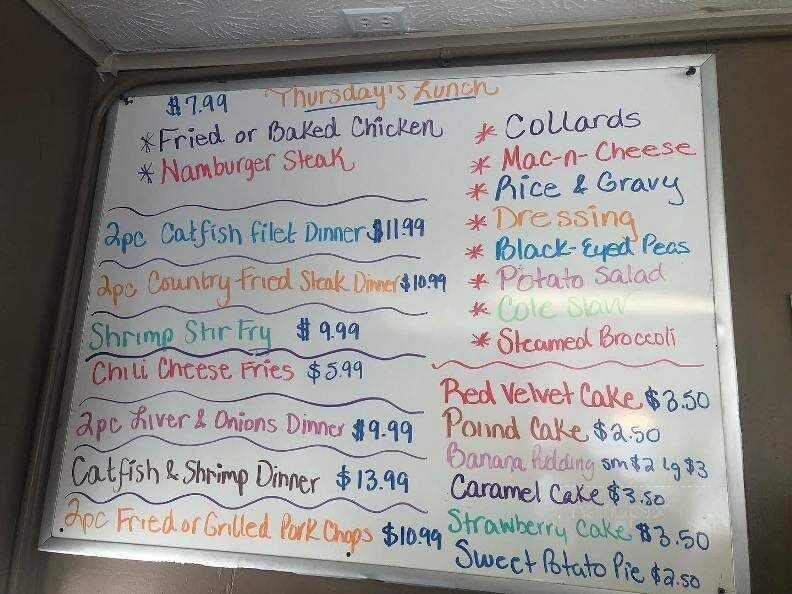 Thursday's Lunch
$7.99
* Fried or Baked Chicken
* Hamburger Steak
2pc Catfish filet Dinner $11.99
2pc Country Fried Steak Dinner $10.99
Shrimp Stir Fry $9.99
Chili Cheese Fries $5.99
2pc Liver & Onions Dinner $9.99
Catfish & Shrimp Dinner $13.99
2pc Fried or Grilled Pork Chops $10.99
* Collards
* Mac-n-Cheese
* Rice & Gravy
* Dressing
* Black-Eyed Peas
* Potato Salad
* Cole Slaw
* Steamed Broccoli
Red Velvet Cake $3.50
Pound Cake $2.50
Banana Pudding sm $2 lg $3
Caramel Cake $3.50
Strawberry Cake $3.50
Sweet Potato Pie $2.50